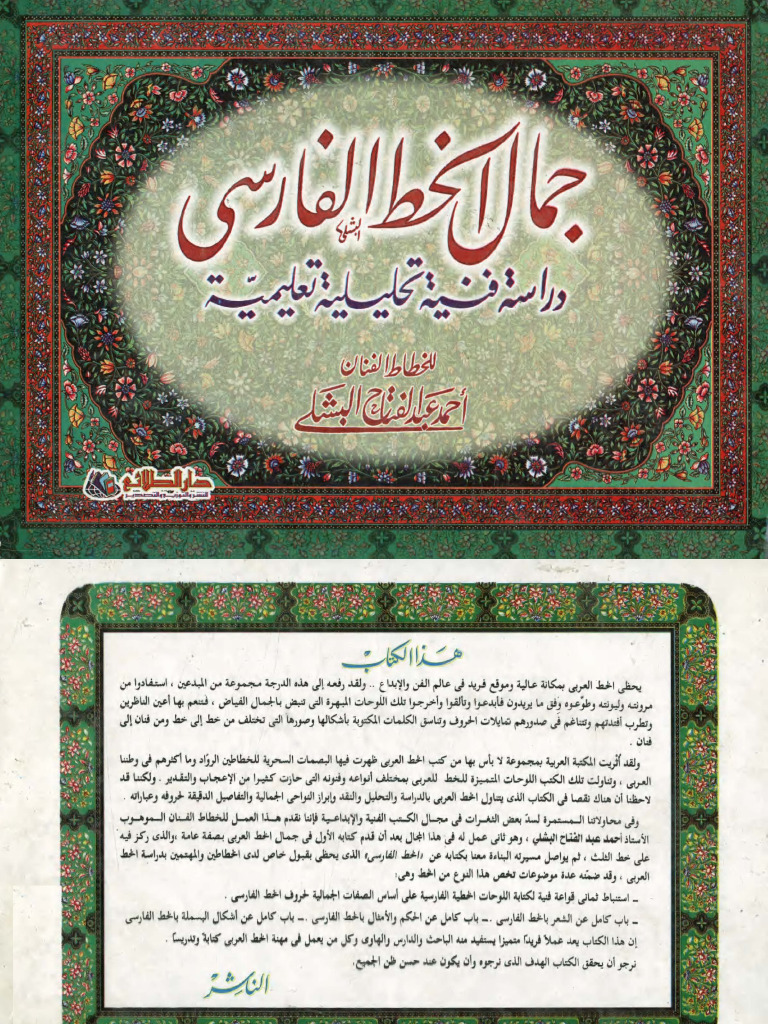 جمال الخط الفارسى
البشلى
دراسة فنية تحليلية تعليميّة
للخطاط الفنان
أحمد عبد الفتاح البشلى
دار الطلائع
للنشر والتوزيع والتصدير
هذا الكتاب
يحظى الخط العربى بمكانة عالية وموقع فريد فى عالم الفن والإبداع .. ولقد رفعه إلى هذه الدرجة مجموعة من المبدعين ، استفادوا من
مرونته وليونته وطوّعوه وفق ما يريدون فأبدعوا وتألقوا وأخرجوا تلك اللوحات المبهرة التى تنبض بالجمال الفياض ، فتنعم بها أعين الناظرين
وتطرب أفئدتهم وتتناغم فى صدورهم تمايلات الحروف وتناسق الكلمات المكتوبة بأشكالها وصورها التى تختلف من خط إلى خط ومن فنان إلى
فنان .
ولقد أثريت المكتبة العربية بمجموعة لا بأس بها من كتب الخط العربى ظهرت فيها البصمات السحرية للخطاطين الروّاد وما أكثرهم فى وطننا
العربى ، وتناولت تلك الكتب اللوحات المتميزة للخط العربى بمختلف أنواعه وفنونه التى حازت كثيرا من الإعجاب والتقدير . ولكننا قد
لاحظنا أن هناك نقصا فى الكتاب الذى يتناول الخط العربى بالدراسة والتحليل والنقد وإبراز النواحى الجمالية والتفاصيل الدقيقة لحروفه وعباراته .
وفى محاولاتنا المستمرة لسدّ بعض الثغرات فى مجال الكتب الفنية والإبداعية فإننا نقدم هذا العمل للخطاط الفنان الموهوب
الأستاذ أحمد عبد الفتاح البشلى ، وهو ثانى عمل له فى هذا المجال بعد أن قدم كتابه الأول فى جمال الخط العربى بصفة عامة ،والذى ركز فيه
على خط الثلث ، ثم يواصل مسيرته البناءة معنا بكتابه عن «الخط الفارسى» الذى يحظى بقبول خاص لدى الخطاطين والمهتمين بدراسة الخط
العربى ، وقد ضمّنه عدة موضوعات تخص هذا النوع من الخط وهى:
ــ استنباط ثمانى قواعد فنية لكتابة اللوحات الخطية الفارسية على أساس الصفات الجمالية لحروف الخط الفارسى .
ــ باب كامل عن الشعر بالخط الفارسى .ــ باب كامل عن الحكم والأمثال بالخط الفارسى .ــ باب كامل عن أشكال البسملة بالخط الفارسى
إن هذا الكتاب يعد عملاً فريدًا متميزا يستفيد منه الباحث والدارس والهاوى وكل من يعمل فى مهنة الخط العربى كتابةً وتدريسا .
نرجو أن يحقق الكتاب الهدف الذى نرجوه وأن يكون عند حسن ظن الجميع.
الناشر